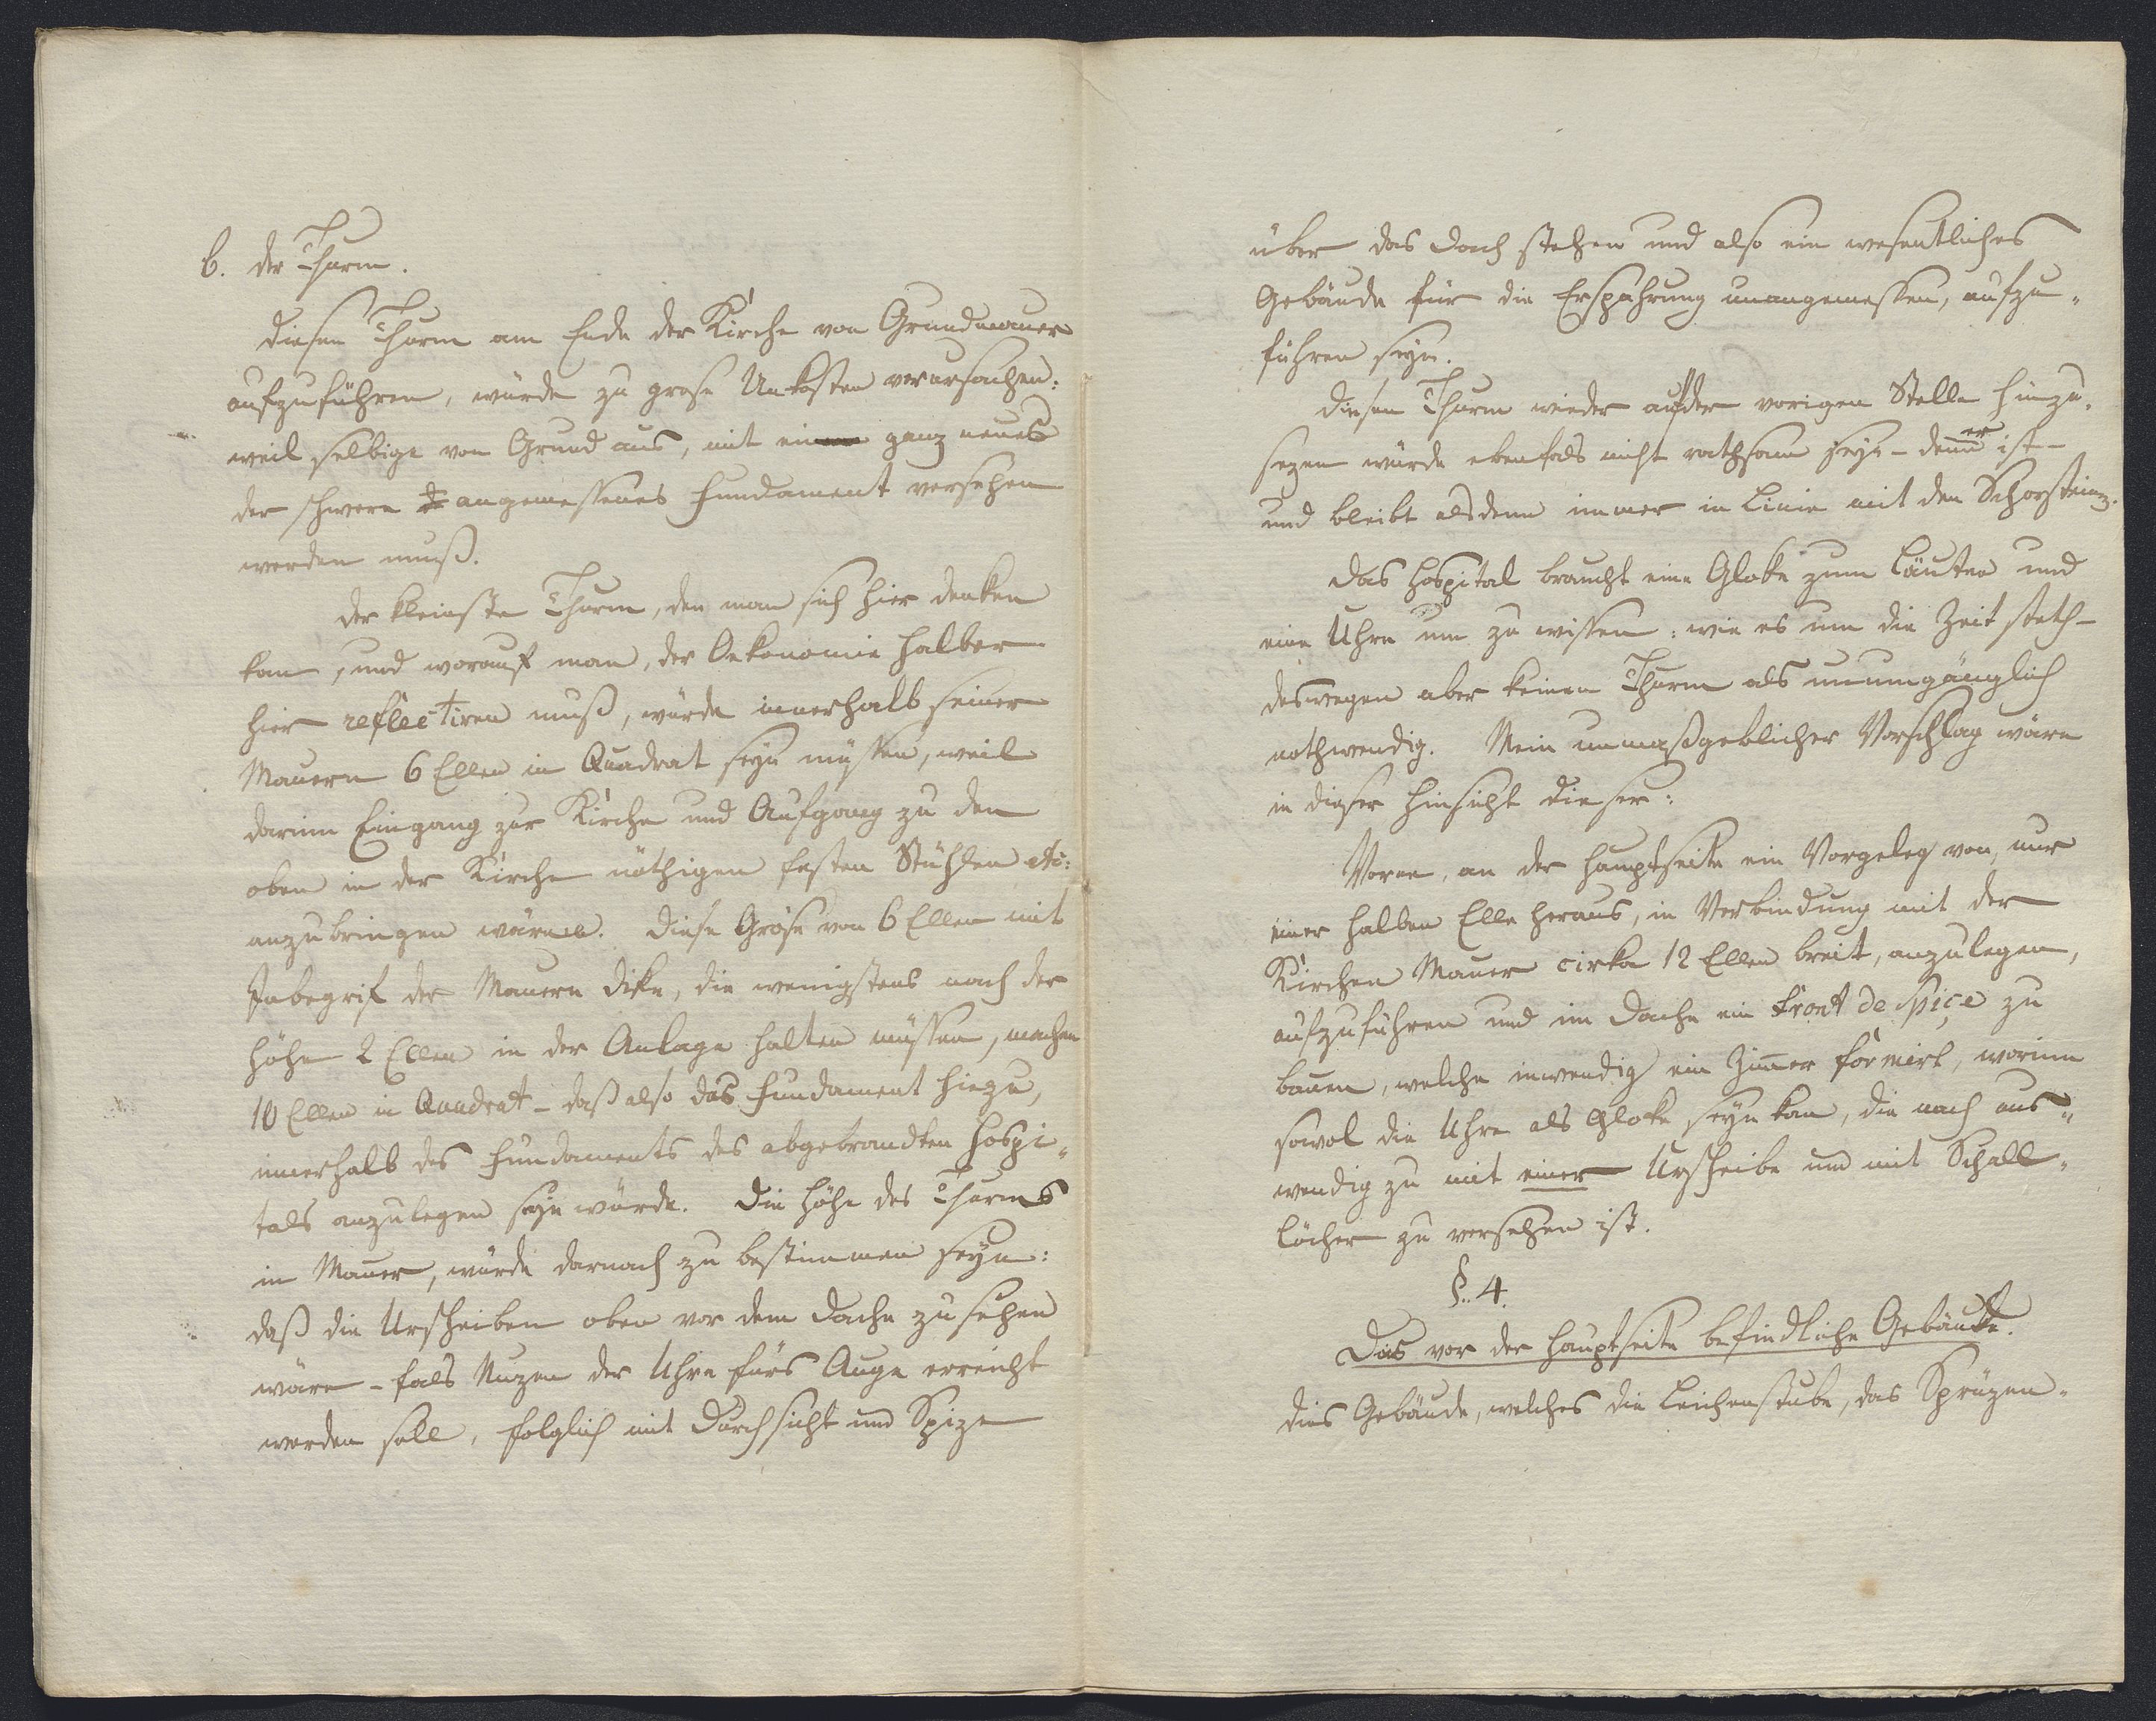 b. der Thurm.
Diesen Thurm am Ende der Kirche von Grundmauer
aufzuführen, würde zu grose Unkosten verursachen:
weil selbige von Grund aus, mit ein ganz neues
der schwere angemessenes Fundament versehen
werden muß.
Der kleinste Thurm, den man sich hier denken
kan, und worauf man, der Oekonomie halber
hier reflectiren muß, würde innerhalb seiner
Mauern 6 Ellen in Quadrat seyn müssen, weil
darinn Eingang zur Kirche und Aufgang zu den
oben in der Kirche nöthigen festen Stühlen etc:
anzubringen wären. Diese Gröse von 6 Ellen mit
Inbegrif der Mauern dike, die wenigstens nach der
Höhe 2 Ellen in der Anlage halten müssen, machen
10 Ellen in Quadrat – daß also das Fundament hiezu,
innerhalb des Fundaments des abgebrandten Hospi„
tals anzulegen seyn würde. Die Höhe des Thurms
in Mauer, würde darnach zu bestimmen seyn:
daß die Urscheiben oben vor dem Dache zu sehen
wären – fals Nuzen der Uhre fürs Auge erreicht
werden soll, folglich mit Durchsicht und Spize
über das Dach stehen und also ein wesentliches
Gebäude für die Erspahrung unangemessen, aufzu„
führen seyn.
Diesen Thurm wieder auf der vorigen Stelle hinzu„
sezen würde ebenfals nicht rathsam seyn – denn er ist –
und bleibt alsdenn immer in Linie mit den Schorsteinen.
Das Hospital braucht eine Gloke zum Läuten und
eine Uhre um zu wissen: wie es um die Zeit steth –
deswegen aber keinen Thurm als unumgänglich
nothwendig. Mein unmaßgeblicher Vorschlag wäre
in dieser Hinsicht dieser:
Vorne, an der Hauptseite ein Vorgeleg von, nur
einer halben Elle heraus, in Verbindung mit der
Kirchen Mauer cirka 12 Ellen breit, anzulegen,
aufzuführen und im Dache ein front de spiçe zu
bauen, welche inwendig ein Zimer formirt, worinn
sowol die Uhre als Gloke seyn kan, die nach aus„
wendig zu mit einer Urscheibe und mit Schall„
löcher zu versehen ist.
§. 4.
Das vor der Hauptseite befindliche Gebäude.
Dies Gebäude, welches die Leichenstube, das Sprüzen„